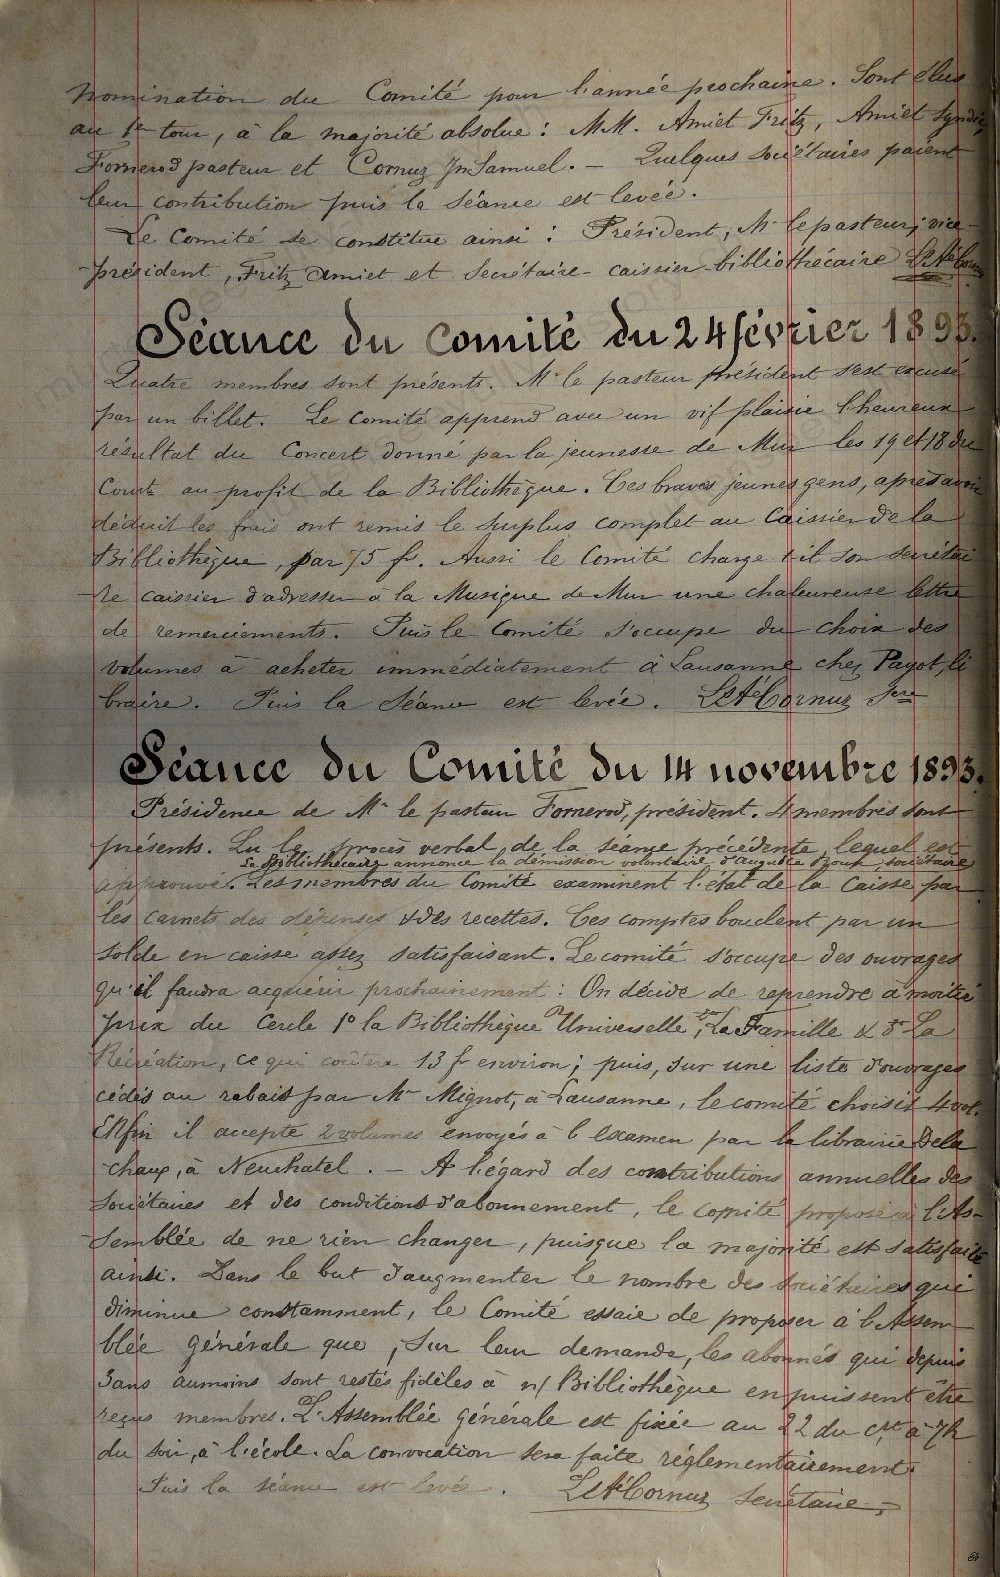 nomination du Comité pour l'année prochaine. Sont élus
au 1er tour, à la majorité absolue : MM. Amiet Fritz, Amiet Syndic,
Fornerod pasteur et Cornuz Jn Samuel. — Quelques sociétaires paient
leur contribution puis la séance est levée.
Le Comité se constitue ainsi : Président, Mr le pasteur ; vice-
-président, Fritz Amiet et Secrétaire-caissier-bibliothécaire
Séance du Comité du 24 février 1893.
Quatre membres sont présents. Mr le pasteur président s'est excusé
par un billet. Le Comité apprend avec un vif plaisir l'heureux
résultat du Concert donné par la jeunesse de Mur les 19 et 18 du
Court au profit de la Bibliothèque. Ces braves jeunes gens, après avoir
déduit les frais ont remis le surplus complet au Caissier de la
Bibliothèque, par 75 fs. Aussi le Comité charge t-il son secrétai
-re caissier d'adresser à la Musique de Mur une chaleureuse lettre
de remerciements. Puis le Comité s'occupe du choix des
volumes à acheter immédiatement à Lausanne chez Payot, li
braire. Puis la Séance est levée. Cornuz Scre
Séance du Comité du 14 novembre 1893.
Présidence de Mr le pasteur Fornerod, président. 4 membres sont
présents. Lu le procès verbal de la séance précédente, lequel est
Le Bibliothécaire annonce la démission volontaire d'Auguste sociétaire
approuvé. Les membres du Comité examinent l'état de la caisse par
les carnets des dépenses & des recettes. Ces comptes bouclent par un
solde en caisse assez satisfaisant. Le comité s'occupe des ouvrages
qu'il faudra acquérir prochainement : On décide de reprendre à moitié
prix du Cercle 1° la Bibliothèque Universelle, La Famille & 3° La
Récréation, ce qui coûtera 13 f environ ; puis, sur une liste d'ouvrages
cédés au rabais par Mr Mignot, à Lausanne, le comité choisit 4 vol.
Enfin il accepte 2 volumes envoyés à l'examen par la librairie Dela
chaux, à Neuchatel. — A l'égard des contributions annuelles des
sociétaires et des conditions d'abonnement, le comité propose à l'As-
-semblée de ne rien changer, puisque la majorité est satisfaite
ainsi. Dans le but d'augmenter le nombre des sociétaires qui
diminue constamment, le Comité essaie de proposer à l'Assem
blée générale que, sur leur demande, les abonnés qui depuis
3 ans au moins sont restés fidèles à n/ Bibliothèque en puissent être
reçus membres. L'Assemblée générale est fixée au 22 du ct à 7h
du soir, à l'école. La convocation sera faite réglementairement.
Puis la séance est levée. Cornuz Secrétaire